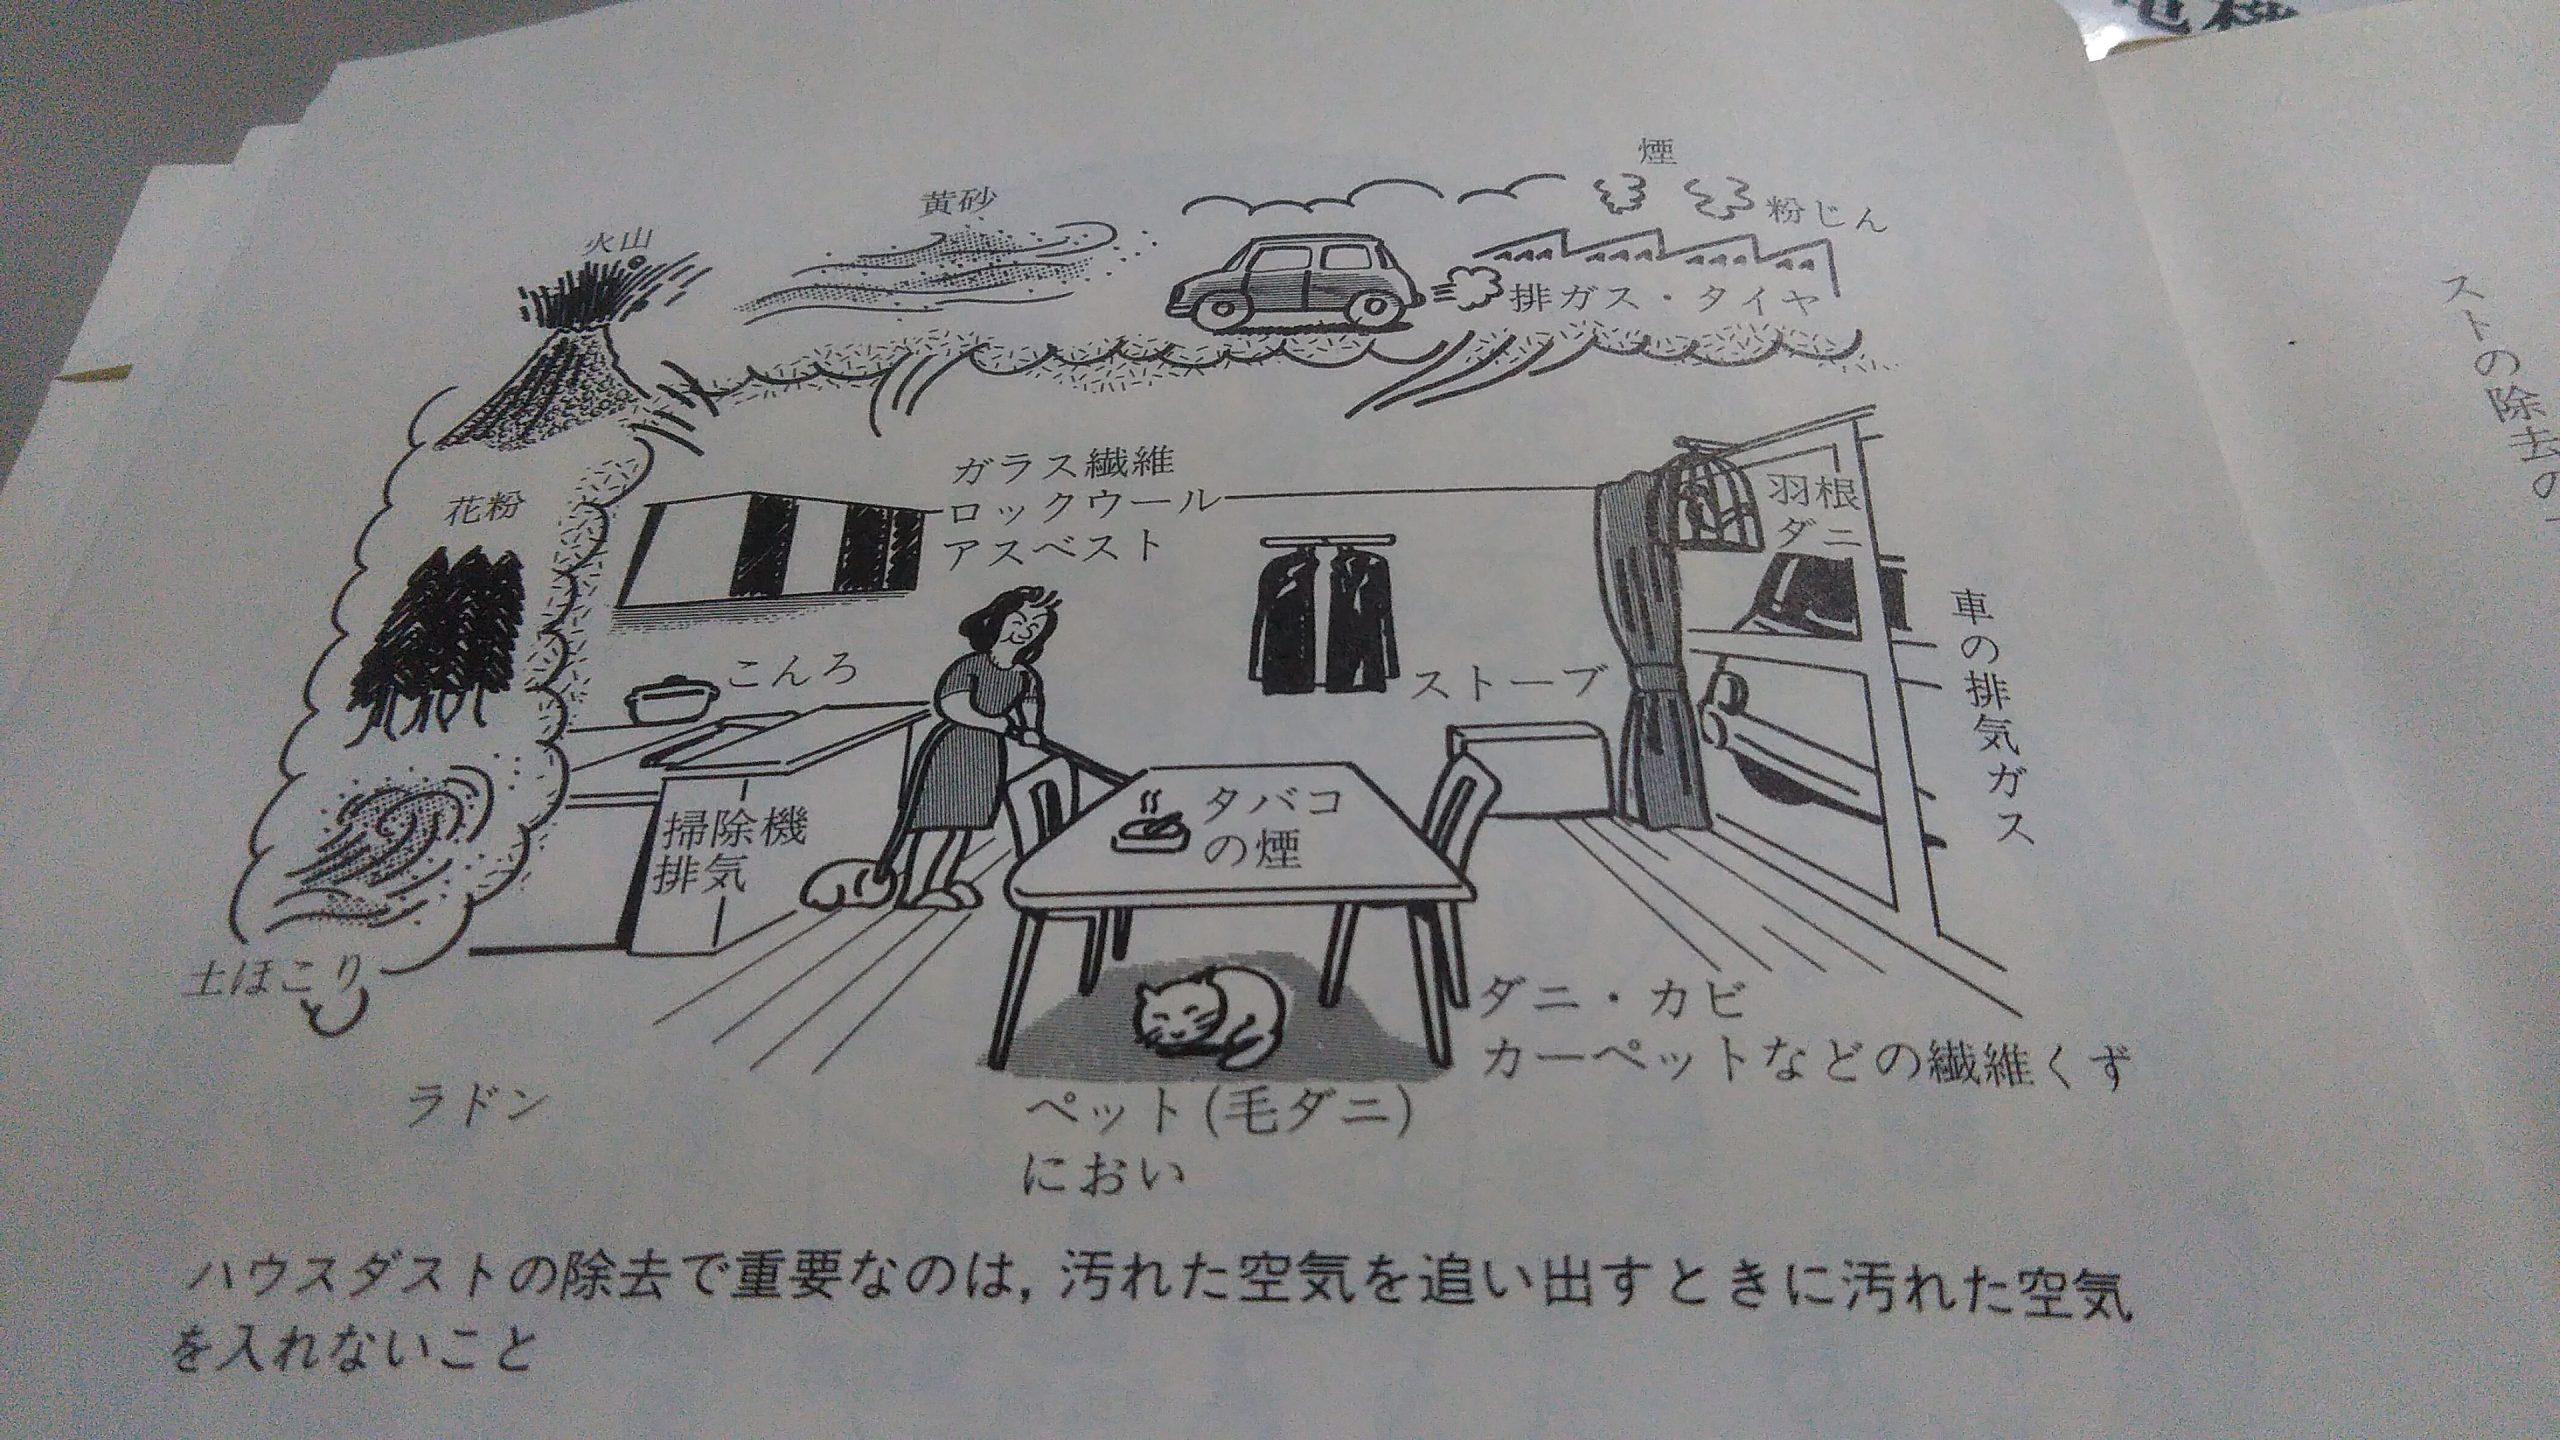 電機
煙
黄砂
粉じん
火山
排ガス・タイヤ
ガラス繊維
ロックウール
アスベスト
花粉
羽根
ダニ
車の排気ガス
こんろ
ストーブ
タバコ
の煙
掃除機
排気
土ほこり
ダニ・カビ
カーペットなどの繊維くず
ラドン
ペット(毛ダニ)
におい
ハウスダストの除去で重要なのは,汚れた空気を追い出すときに汚れた空気
を入れないこと
ストの除去の